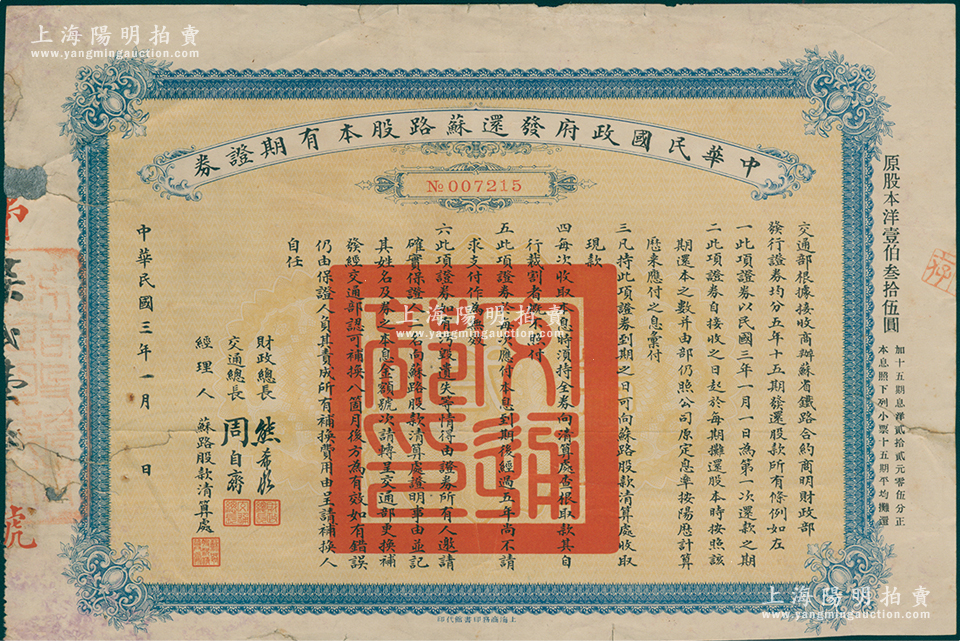 上海陽明拍賣
www.yangmingauction.com
上海陽明拍賣
www.yangmingauction.com
中華民國政府發還蘇路股本有期證券
№007215
原股本洋壹伯叁拾伍圓
加十五期息洋貳拾貳元零伍分正
本息照下列小票十五期平均攤還
交通部根據接收商辦蘇省鐵路合約商明財政部
發行證券均分五年十五期發還股款所有條例如左
一此項證券以民國三年一月一日為第一次還款之期
二此項證券自接收之日起於每期攤還股本時按照該
期還本之數并由部仍照公司原定息率按陽曆計算
曆來應付之息彙付
三凡持此項證券到期之日可向蘇路股款清算處收取
現款
四每次收取本息時須持全券向清算處查根取款其自
行裁割者概不照付
五此項證券每次應付本息到期後經過五年尚不請
求支付作為無效
六此項證券如有污毀遺失等情得由證券所有人邀請
確實保證人二名向蘇路股款清算處證明事由並記
其姓名及券之本息金額號次請轉呈交通部更換補
發經交通部認可補換八箇月後方為有效如有錯誤
仍由保證人員其責成所有補換費用由呈請補換人
自任
財政總長 熊希齡
交通總長 周自齊
經理人 蘇路股款清算處
中華民國三年一月 日
號
上海商務印書館代印
上海陽明拍賣
www.yangmingauction.com
上海陽明拍賣
www.yangmingauction.com